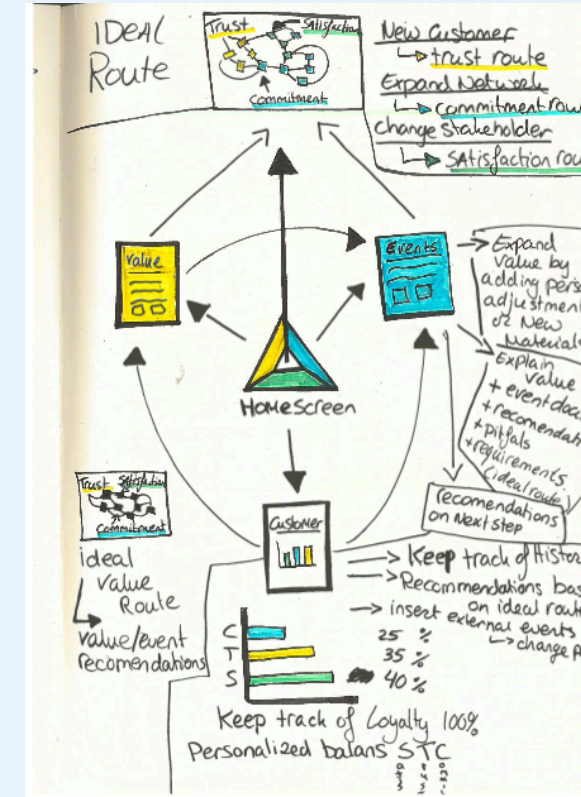 IDEAL
Route
Trust
Satisfaction
Commitment
New customer
trust route
Expand Network
commitment rou
Change stakeholder
Satisfaction rou
Value
Events
Expand
value by
adding perso
adjustment
or New
Materials
Explain
value
+ event doc
+ recomendati
+ pitfals
+ requirements
ideal route
HOMESCREEN
recomendations
on Next step
Trust
Satisfaction
Commitment
ideal
value
Route
value/event
recomendations
Customer
Keep track of Histor
Recommendations bas
on ideal route
insert external events
change p
C
T
S
25 %
35 %
40 %
Keep track of Loyalty 100%
Personalized balans STC